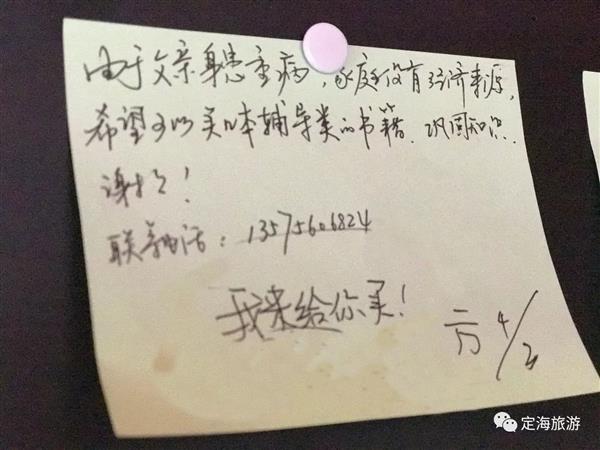 由于父亲身患重病，家庭没有经济来源，
希望可以买几本辅导类的书籍，巩固知识．
谢谢！
联系电话：13575606824
我来给你买！
方 4/2
定海旅游